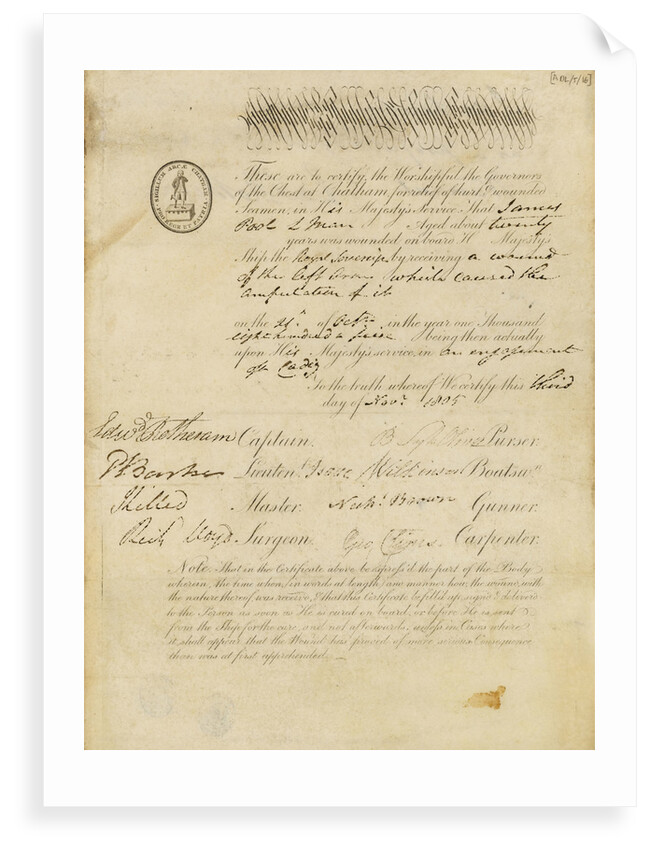 [ADL/T/16]
SIGILLUM ARCÆ CHATHAM
PRO REGE ET PATRIA
These are to certify, the Worshipful the Governors
of the Chest at Chatham, for relief of hurt & wounded
Seamen, in His Majesty's Service That James
Pool L Man Aged about twenty
years was wounded on board H Majestys
Ship the Royal Sovereign by receiving a wound
of the left Arm which caused the
amputation of it
on the 21st of Octr. in the year one Thousand
eight hundred & five being then actually
upon His Majesty's service, in an engagement
off Cadiz
To the truth whereof We certify this third
day of Novr. 1805
Edwd. Rotheram Captain. Purser.
P Barker Lieutent. Isaac Wilkinson Boatswn.
Master. Brown Gunner.
Rich Lloyd Surgeon. Geo. Carpenter.
Note. That in the Certificate above be express'd the part of the Body
wherein, the time when, in words at length, and manner how, the wound, with
the nature thereof was receiv'd, & that this Certificate be fill'd up, sign'd & deliver'd
to the Person as soon as He is cured on board, or before He is sent
from the Ship for the cure, and not afterwards; unless in Cases where
it shall appear that the Wound has proved of more serious Consequence
than was at first apprehended.